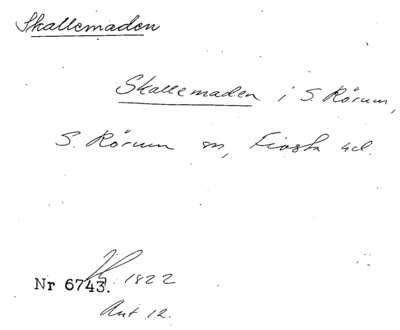 Skallemaden
Skallemaden i S. Rörum,
S. Rörum sn, Frosta hd.
1822
Nr 6743.
Akt 12.